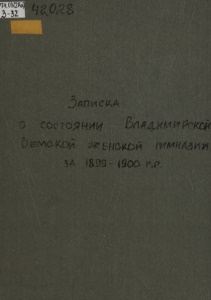 42028
З-32
Записка
о состоянии Владимирской
Земской женской гимназии
за 1899-1900 г.г.